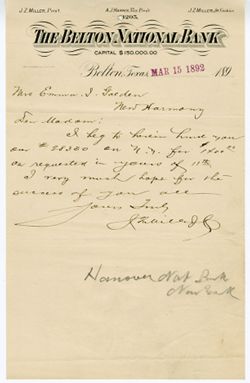 J.Z. MILLER, Prest.
A.J. HARRIS, Vice Prest.
J.Z. MILLER, Jr. Cashier.
1203.
THE BELTON NATIONAL BANK
CAPITAL $150,000.00
Belton, Texas MAR 15 1892 189
Mrs Emma I. Gooden
New Harmony
Dear Madam:
I beg to herein hand you
our # 28330 on N.Y. for
as requested in yours of 11th
I very much hope for the
success of you all
Yours Truly
J Z Miller Jr
Hanover Nat Bank
New York